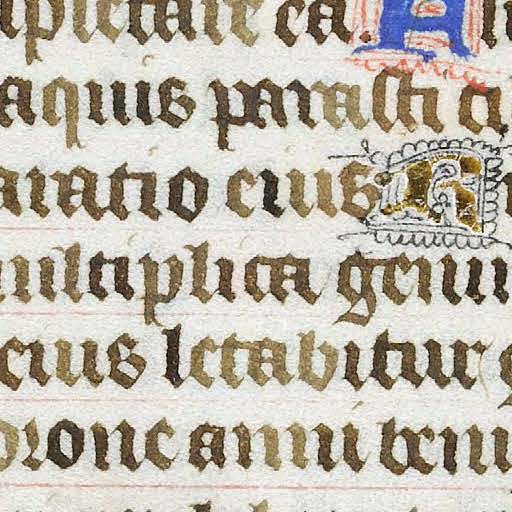 upletare ea. F
aquis parasti ci
aratio eius R
multiplica genim
eius letabitur g
orone anni beni